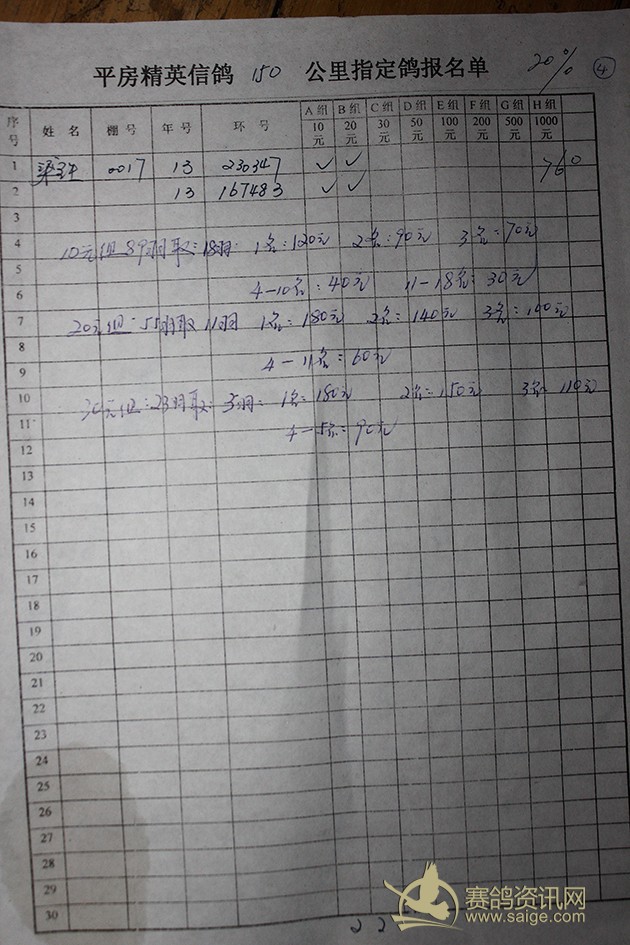 平房精英信鸽 150 公里指定鸽报名单 20% ④
序号 姓名 棚号 年号 环号 A组10元 B组20元 C组30元 D组50元 E组100元 F组200元 G组500元 H组1000元
1 0017 13 230347 ✓ ✓ 760
2 13 167483 ✓ ✓
3
4 10元组89羽取:18羽: 1名:120元 2名:90元 3名:70元
5
6 4-10名:40元 11-18名:30元
7 20元组:55羽取11羽 1名:180元 2名:140元 3名:100元
8
9 4-11名:60元
10 30元组:23羽取:5羽: 1名:180元 2名:150元 3名:110元
11 4-5名:90元
12
13
14
15
16
17
18
19
20
21
22
23
24
25
26
27
28
29
30
赛鸽资讯网
www.saige.com